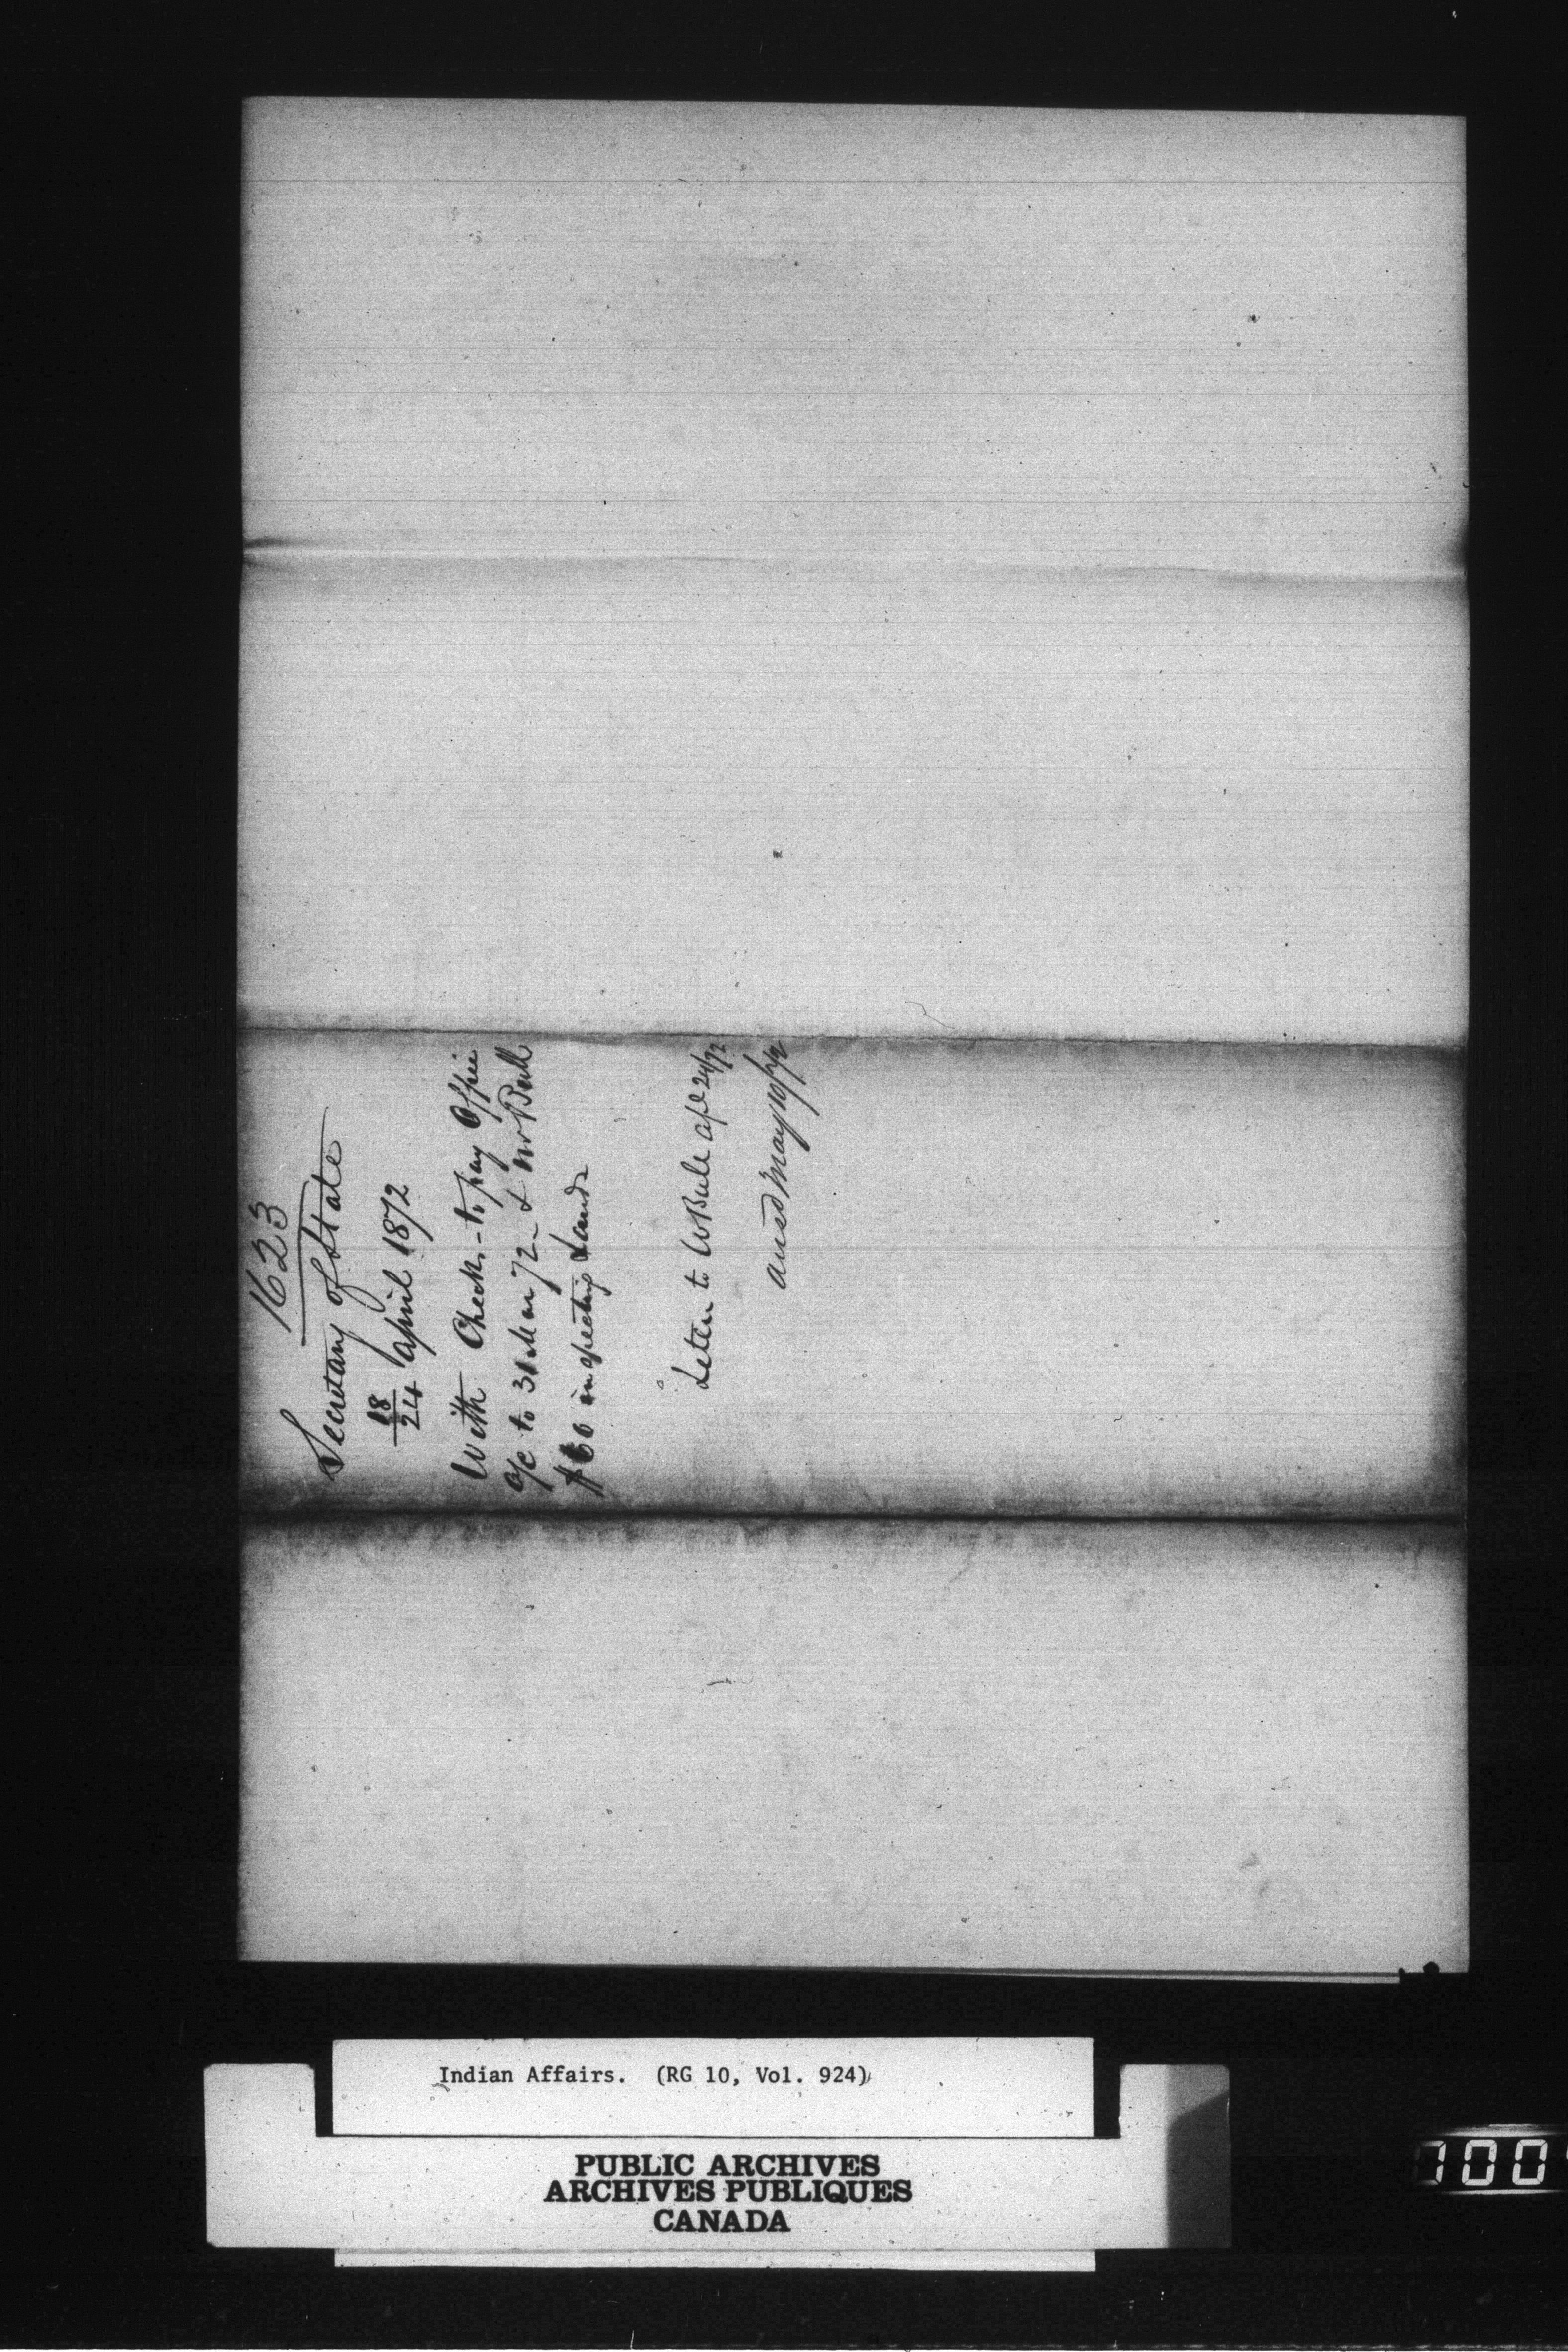 1623
Secretary of State
18/24 April 1872
With Check - to pay Office
a/c to 31 Mar 72 - & Mr Bull
$60 inspecting Lands
Letter to W Bull apl 24/72
ansd May 10/72
Indian Affairs. (RG 10, Vol. 924)
PUBLIC ARCHIVES
ARCHIVES PUBLIQUES
CANADA